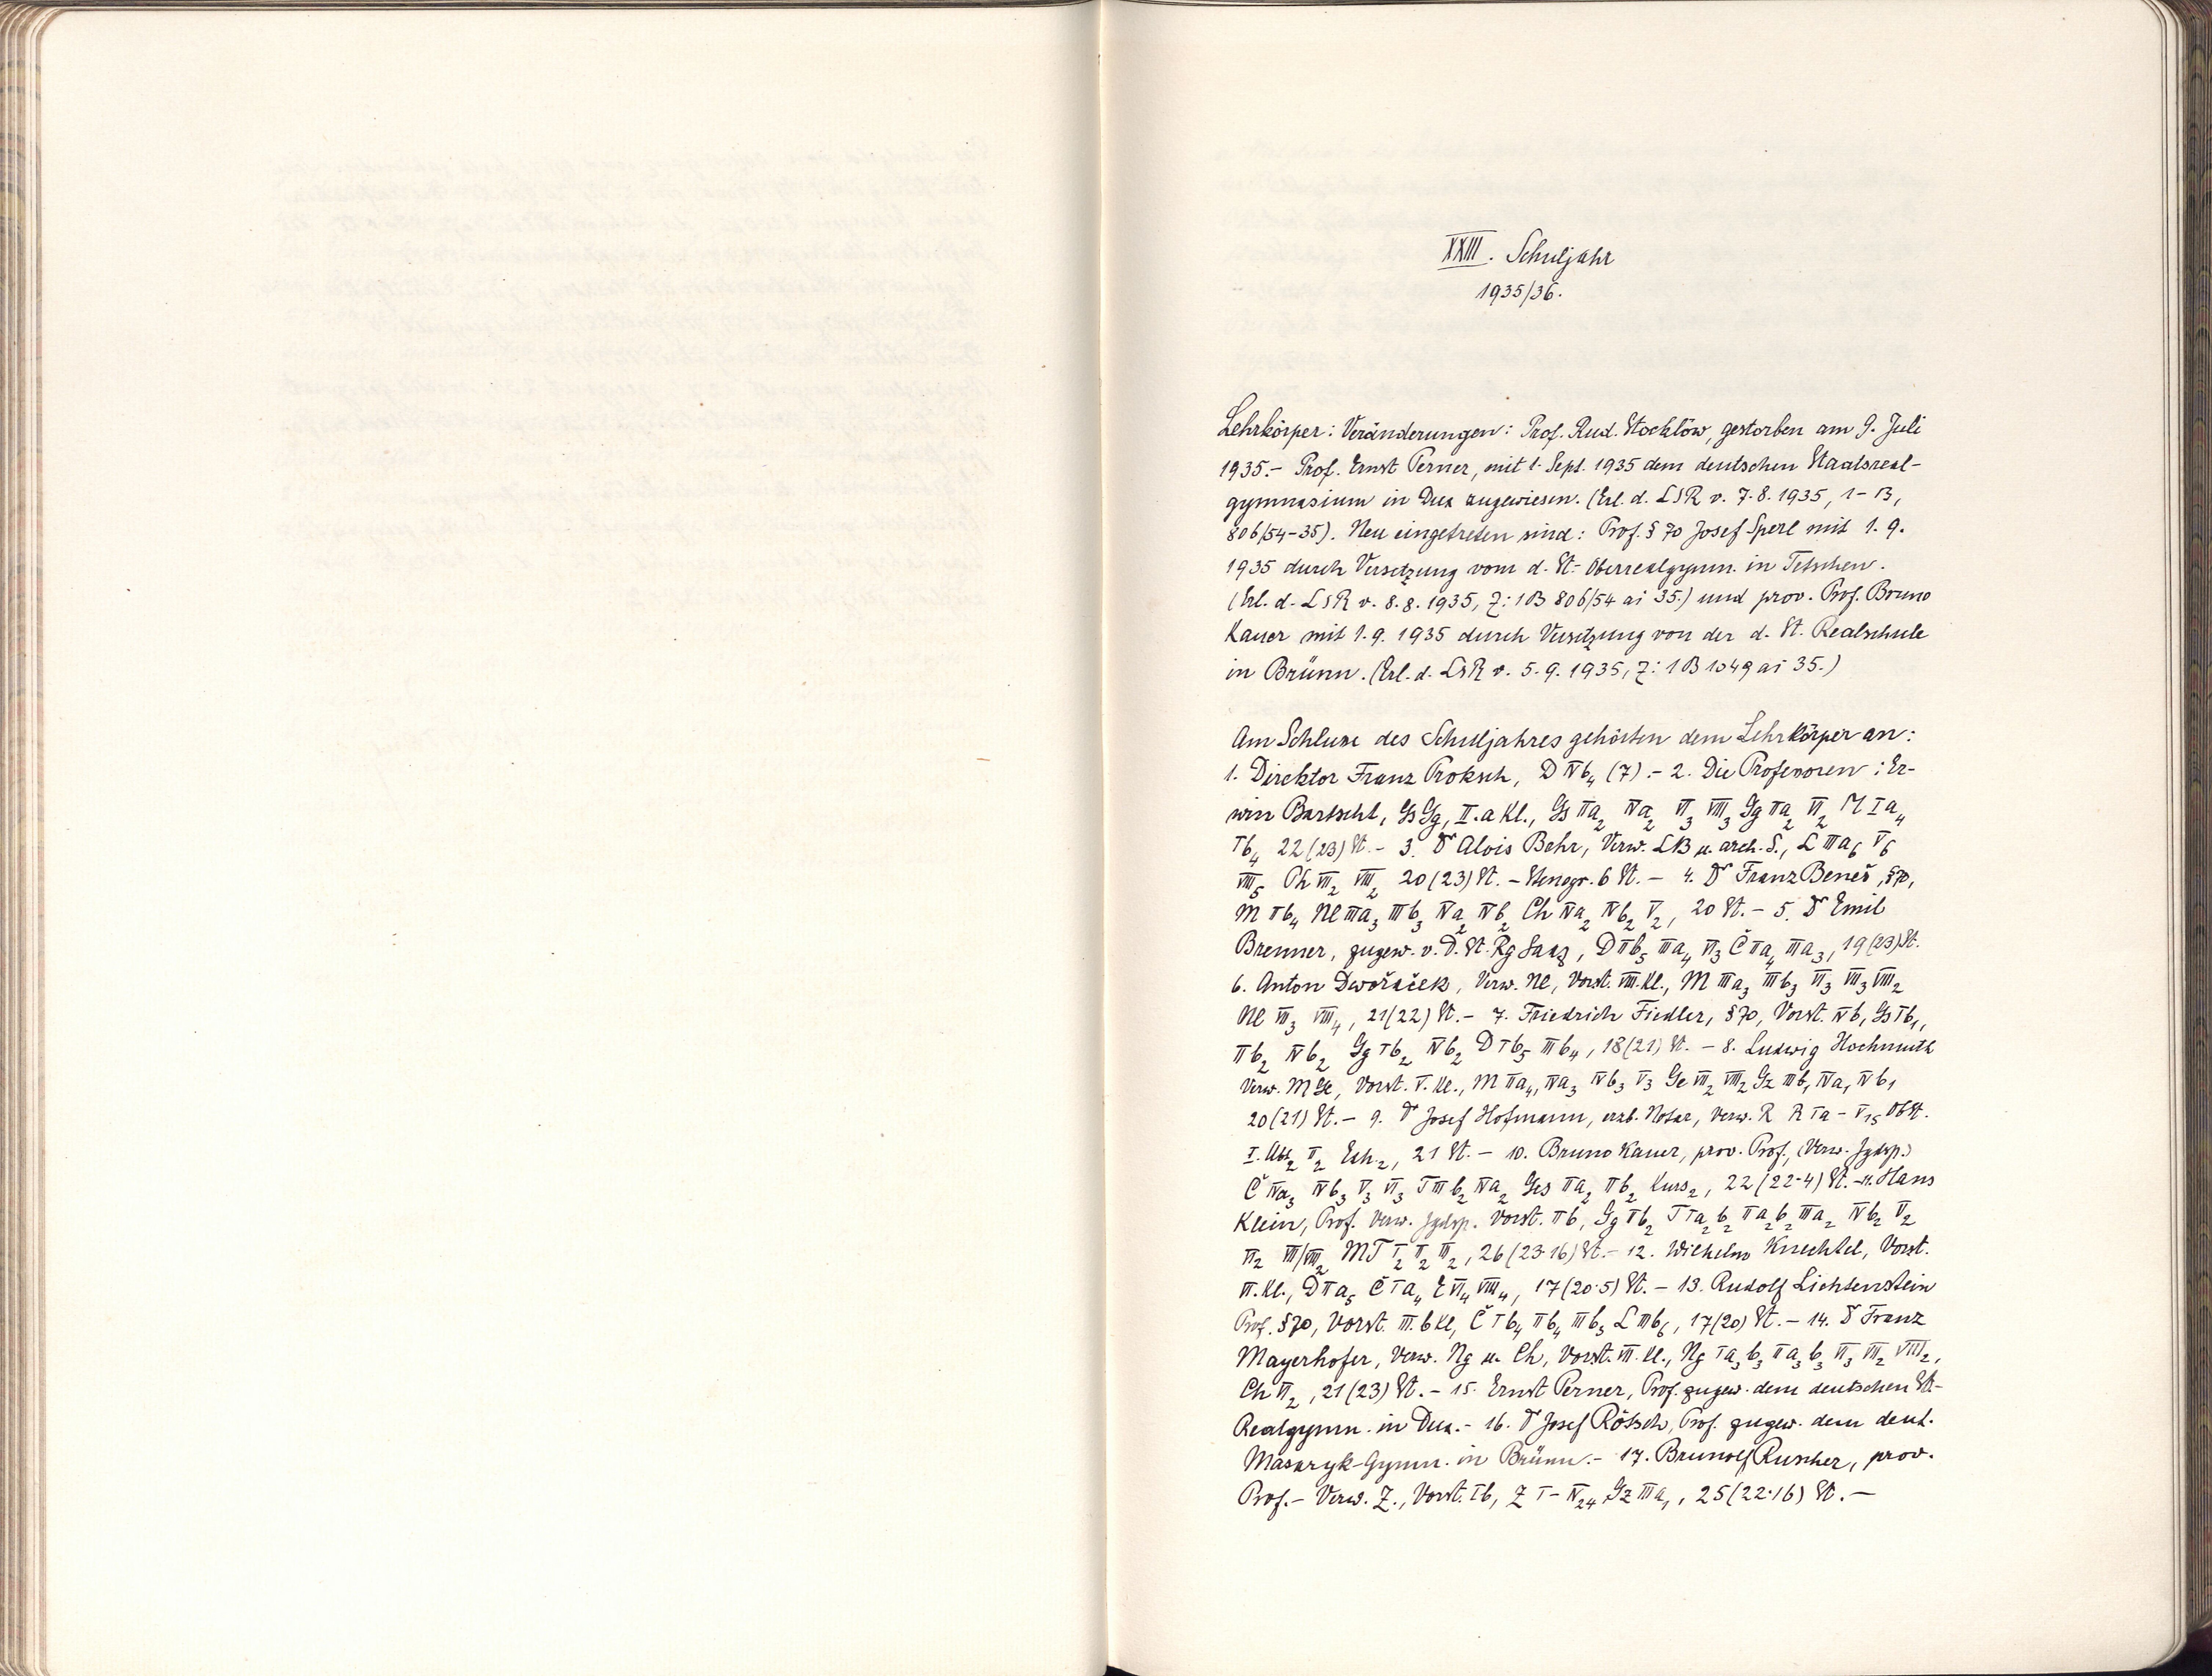 XXIII. Schuljahr
1935/36.
Lehrkörper: Veränderungen: Prof. Rud. Stocklöw, gestorben am 9. Juli
1935.- Prof. Ernst Perner, mit 1. Sept. 1935 dem deutschen Staatsreal-
gymnasium in Dux zugewiesen. (Erl. d. LSR v. 7.8.1935, 1-B,
806/54-35). Neu eingetreten sind: Prof. § 70 Josef Sperl mit 1.9.
1935 durch Versetzung vom d. St.-Oberrealgymn. in Tetschen.
(Erl. d. LSR v. 8.8.1935, Z: 1B 806/54 ai 35.) und prov. Prof. Bruno
Kauer mit 1.9.1935 durch Versetzung von der d. St. Realschule
in Brünn. (Erl. d. LSR v. 5.9.1935, Z: 1B 1049 ai 35.)
Am Schlusse des Schuljahres gehörten dem Lehrkörper an:
1. Direktor Franz Proksch, D IVb4 (7).- 2. Die Professoren: Er-
win Bartscht, Gs Gg, II.a Kl., Gs IIa2 IVa2 VI3 VIII3 Gg IIa2 VI2 M Ia4
Ib4 22(23) St.- 3. Dr Alois Behr, Verw. LB u. arch. S., L IIIa6 V6
VIII5 Ph VII2 VIII2 20(23) St.- Stenogr. 6 St.- 4. Dr Franz Beneš, §70,
M Ib4 Nl IIIa3 IIIb3 IVa2 IVb2 Ch IVa2 IVb2 V2, 20 St.- 5. Dr Emil
Brenner, zugew. v. D. St. Rg Saaz, D IIb5 IIIa4 VI3 Č IIa4 IIIa3, 19(23) St.
6. Anton Dwořáček, Verw. Nl, Vorst. VIII. Kl., M IIIa3 IIIb3 VI3 VII3 VIII2
Nl VII3 VIII4, 21(22) St.- 7. Friedrich Fiedler, §70, Vorst. IVb, Gs Ib1,
IIb2 IVb2 Gg Ib2 IVb2 D Ib5 IIIb4, 18(21) St.- 8. Ludwig Hochmuth
Verw. M Ge, Vorst. V. Kl., M IIa4, IVa3 IVb3 V3 Ge VII2 VIII2 Gz IIIb1 IVa1 IVb1
20(21) St.- 9. Dr Josef Hofmann, erzb. Notar, Verw. R R Ia - V15 ObSt.
I. Abt2 II2 Exh.2, 21 St.- 10. Bruno Kauer, prov. Prof., (Verw. Jgdsp.)
Č IVa3 IVb3 V3 VI3 T IIIb2 IVa2 Ges IIa2 IIb2 Kurs2, 22(22·4) St.- 11. Hans
Klein, Prof. Verw. Jgdsp. Vorst. IIb, Gg IIb2 T Ia2 b2 IIa2 b2 IIIa2 IVb2 V2
VI2 VII/VIII2 MT I2 II2 III2, 26(23·16) St.- 12. Wilhelm Knechtel, Vorst.
VI. Kl., D IIa5 Č Ia4 E VI4 VIII4, 17(20·5) St.- 13. Rudolf Lichtenstein
Prof. §70, Vorst. III.b Kl, Č Ib4 IIb4 IIIb3 L IIIb6, 17(20) St.- 14. Dr Franz
Mayerhofer, Verw. Ng u. Ch, Vorst. VII. Kl., Ng Ia3 b3 IIa3 b3 VI3 VII2 VIII2,
Ch VI2, 21(23) St.- 15. Ernst Perner, Prof. zugew. dem deutschen St.-
Realgymn. in Dux.- 16. Dr Josef Rötsch, Prof. zugew. dem deut.
Masaryk-Gymn. in Brünn.- 17. Brunolf Ruscher, prov.
Prof.- Verw. Z., Vorst. Ib, Z I - IV24 Gz IIIa1, 25(22·16) St.-